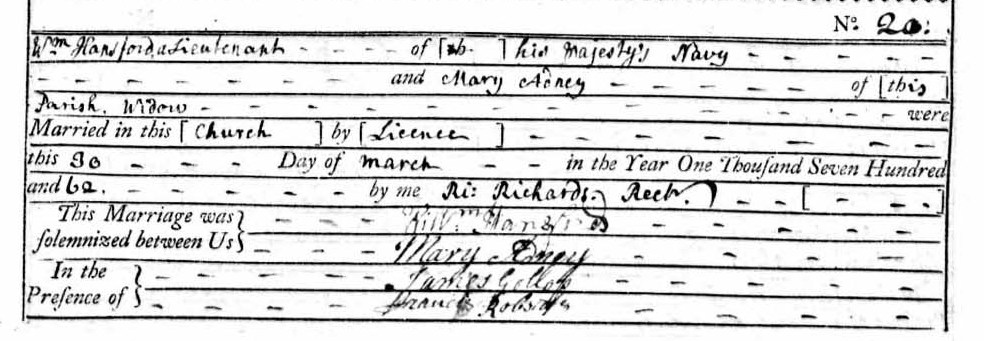 No. 20:
Wm Hansford a Lieutenant - - - - of [ ] his Majesty's Navy - - - -
- - - - - - - - and Mary Adney - - - - - of [this]
Parish. Widow - - - - - - - - - - - - - were
Married in this [Church] by [Licence] - - - - - - -
this 30 - - - - Day of March - - - in the Year One Thouſand Seven Hundred
and 62. - - - - - - - by me Ri: Richards. Rectr. - - [ - - - ]
This Marriage was
ſolemnized between Us } Willm Hansford
Mary Adney
In the
Preſence of } James Gollop